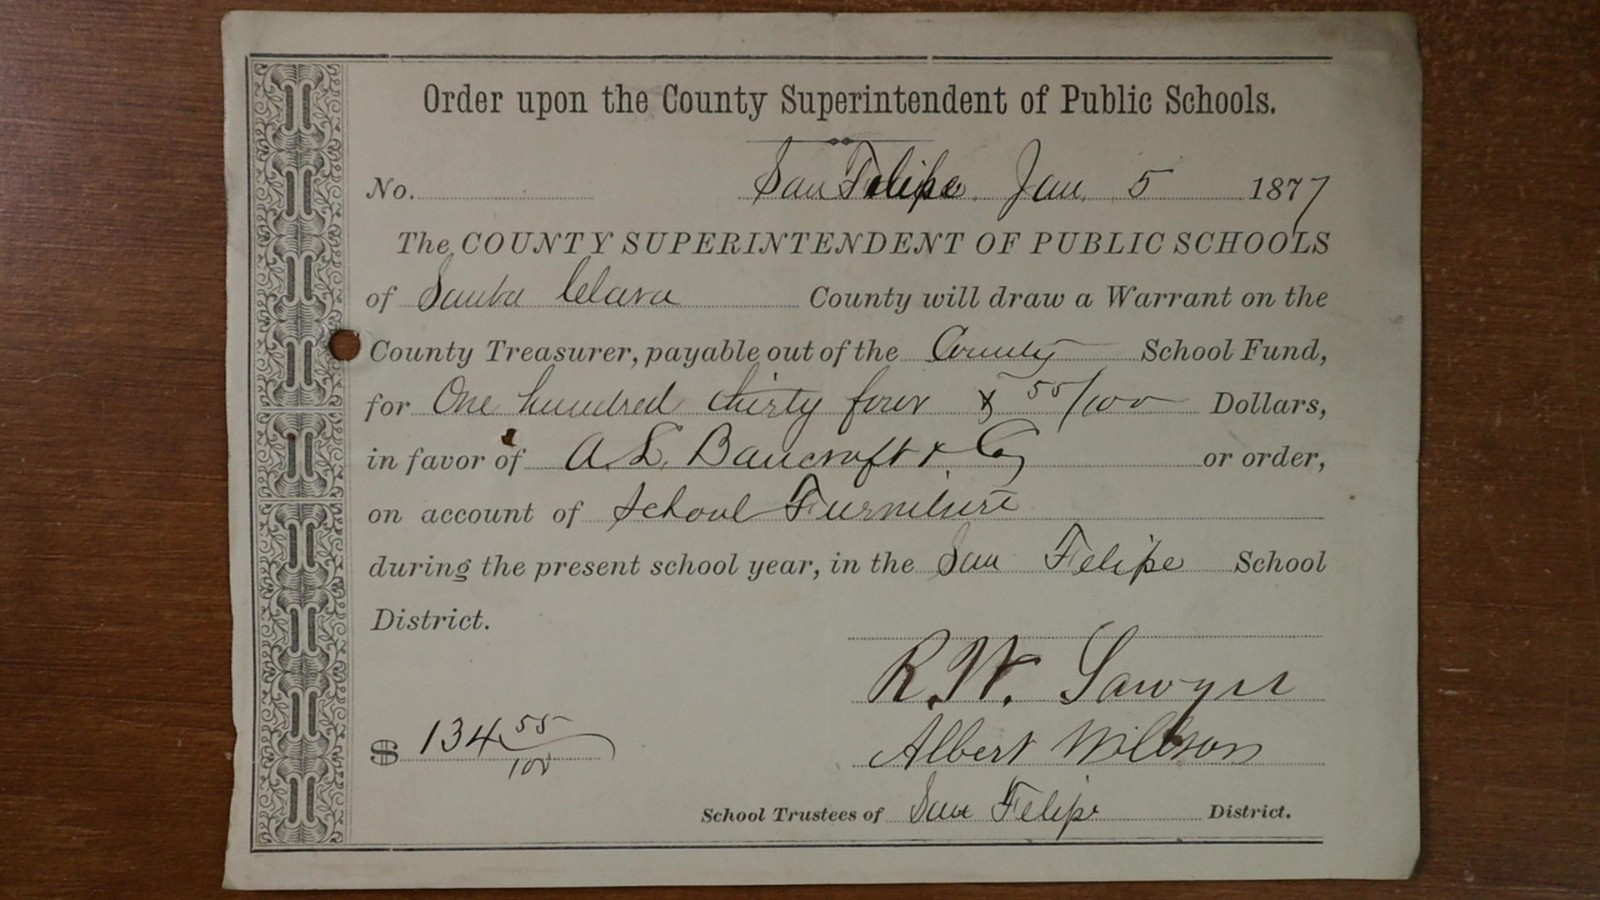 Order upon the County Superintendent of Public Schools.
No. San Felipe. Jan. 5 1877
The COUNTY SUPERINTENDENT OF PUBLIC SCHOOLS
of Santa Clara County will draw a Warrant on the
County Treasurer, payable out of the County School Fund,
for One hundred thirty four & 55/100 Dollars,
in favor of A. L. Bancroft & Co or order,
on account of School Furniture
during the present school year, in the San Felipe School
District.
R. W. Sawyer
$ 134 55/100
Albert Willson
School Trustees of San Felipe District.